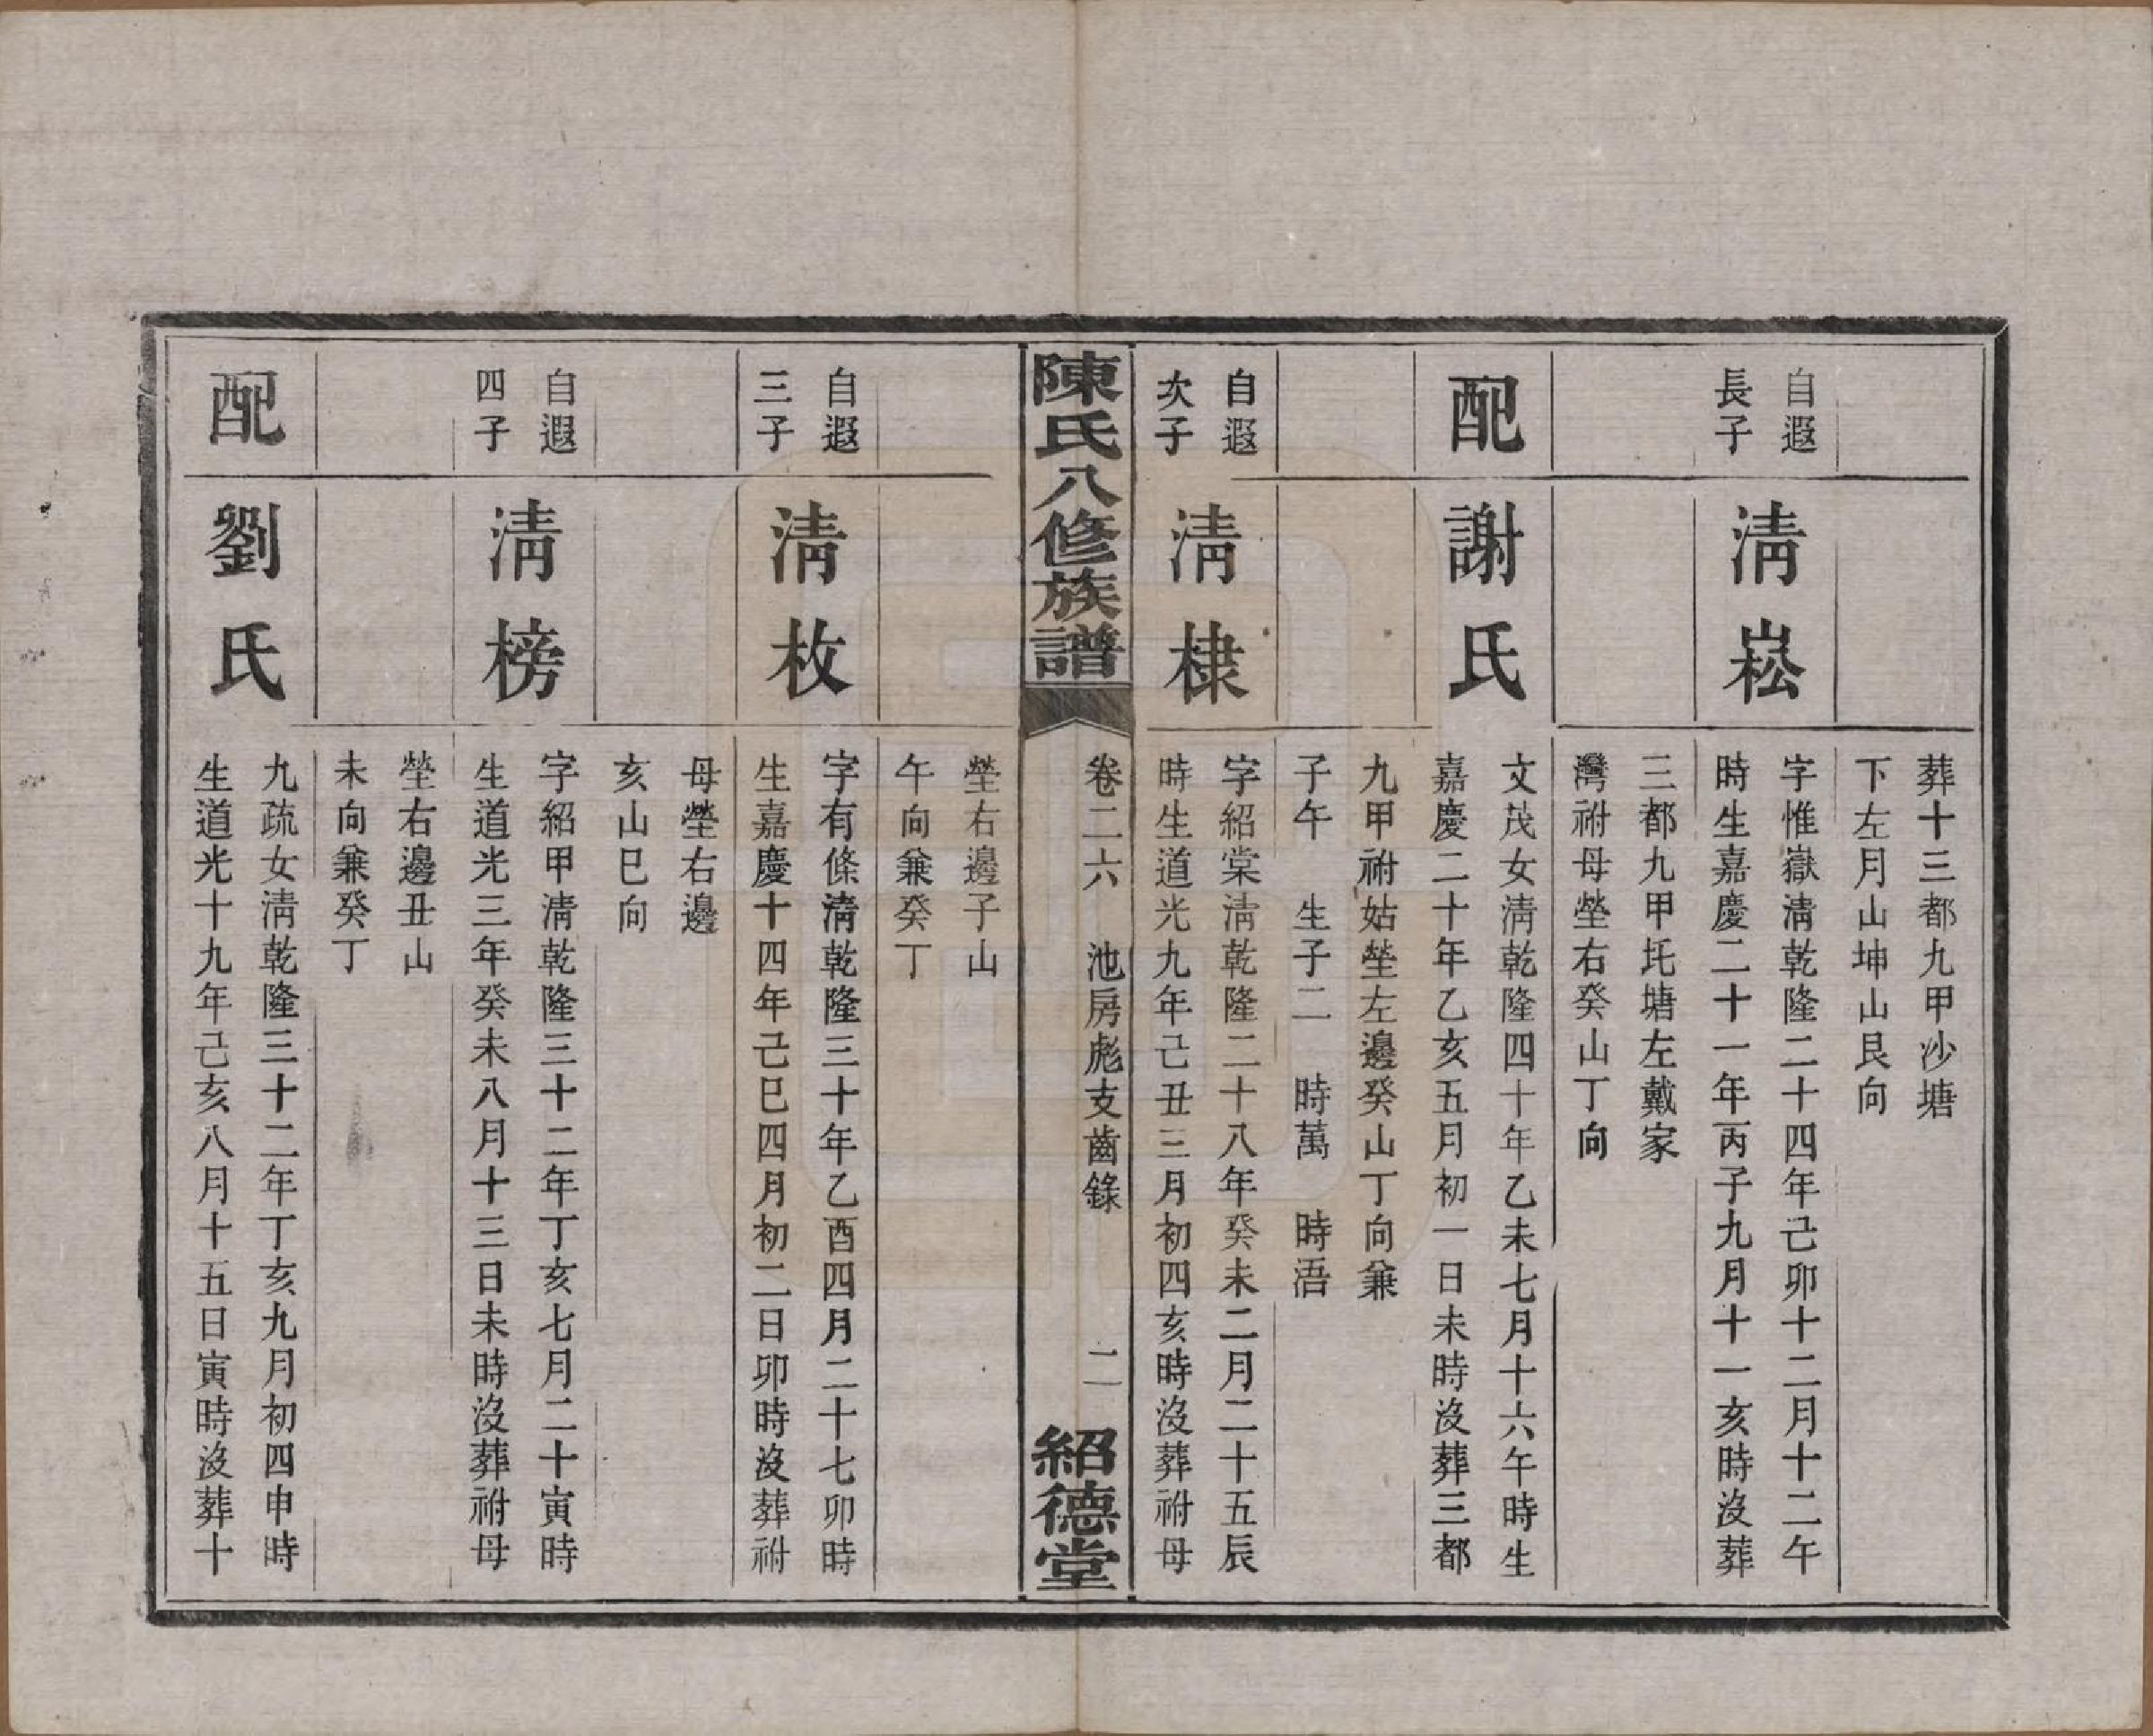 葬十三都九甲沙塘
下左月山坤山艮向
自遐
長子
清崧
字惟嶽清乾隆二十四年己卯十二月十二午
時生嘉慶二十一年丙子九月十一亥時沒葬
三都九甲圫塘左戴家
灣祔母塋右癸山丁向
配
謝氏
文茂女清乾隆四十年乙未七月十六午時生
嘉慶二十年乙亥五月初一日未時沒葬三都
九甲祔姑塋左邊癸山丁向兼
子午 生子二 時萬 時浯
自遐
次子
清棣
字紹棠清乾隆二十八年癸未二月二十五辰
時生道光九年己丑三月初四亥時沒葬祔母
陳氏八修族譜
卷二六 池房彪支齒錄
二
紹德堂
塋右邊子山
午向兼癸丁
自遐
三子
清枚
字有條清乾隆三十年乙酉四月二十七卯時
生嘉慶十四年己巳四月初二日卯時沒葬祔
母塋右邊
亥山巳向
自遐
四子
清榜
字紹甲清乾隆三十二年丁亥七月二十寅時
生道光三年癸未八月十三日未時沒葬祔母
塋右邊丑山
未向兼癸丁
配
劉氏
九疏女清乾隆三十二年丁亥九月初四申時
生道光十九年己亥八月十五日寅時沒葬十